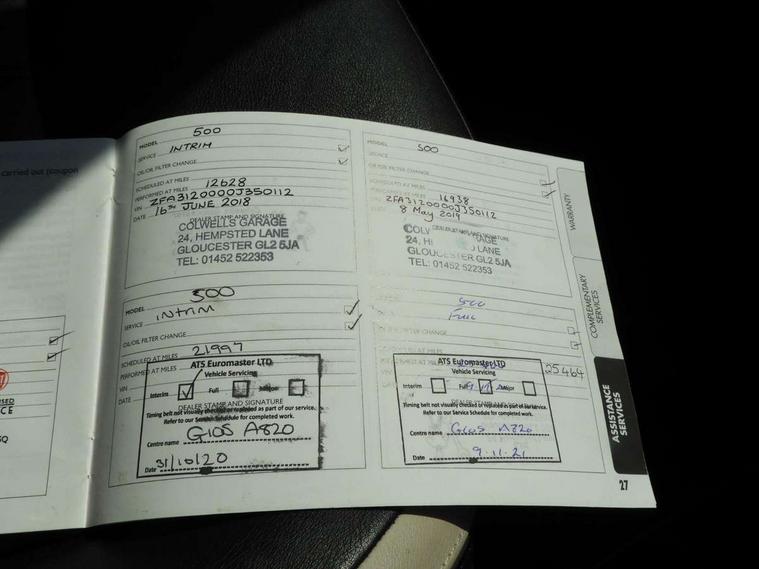 carried out (coupon
MODEL 500
SERVICE INTRIM
OIL/OIL FILTER CHANGE
SCHEDULED AT MILES
PERFORMED AT MILES 12628
VIN ZFA3120000J350112
DATE 16th JUNE 2018
DEALER STAMP AND SIGNATURE
COLWELLS GARAGE
24, HEMPSTED LANE
GLOUCESTER GL2 5JA
TEL: 01452 522353
MODEL 500
SERVICE
OIL/OIL FILTER CHANGE
SCHEDULED AT MILES
PERFORMED AT MILES 16938
ZFA3120000J350112
8 May 2019
DEALER STAMP AND SIGNATURE
24,
GLOUCESTER GL2 5JA
TEL: 01452 522353
MODEL 500
SERVICE INTRIM
OIL/OIL FILTER CHANGE
SCHEDULED AT MILES
PERFORMED AT MILES 21997
VIN
DATE
ATS Euromaster LTD
Vehicle Servicing
Interim Full Major
DEALER STAMP AND SIGNATURE
Timing belt not visually checked or replaced as part of our service.
Refer to our Service Schedule for completed work.
Centre name GlOS A820
Date 31/10/20
500
Full
25464
ATS Euromaster LTD
Vehicle Servicing
Interim Full Major
Timing belt not visually checked or replaced as part of our service.
Refer to our Service Schedule for completed work.
Centre name Glos A820
Date 9.11.21
WARRANTY
COMPLEMENTARY
SERVICES
ASSISTANCE
SERVICES
27